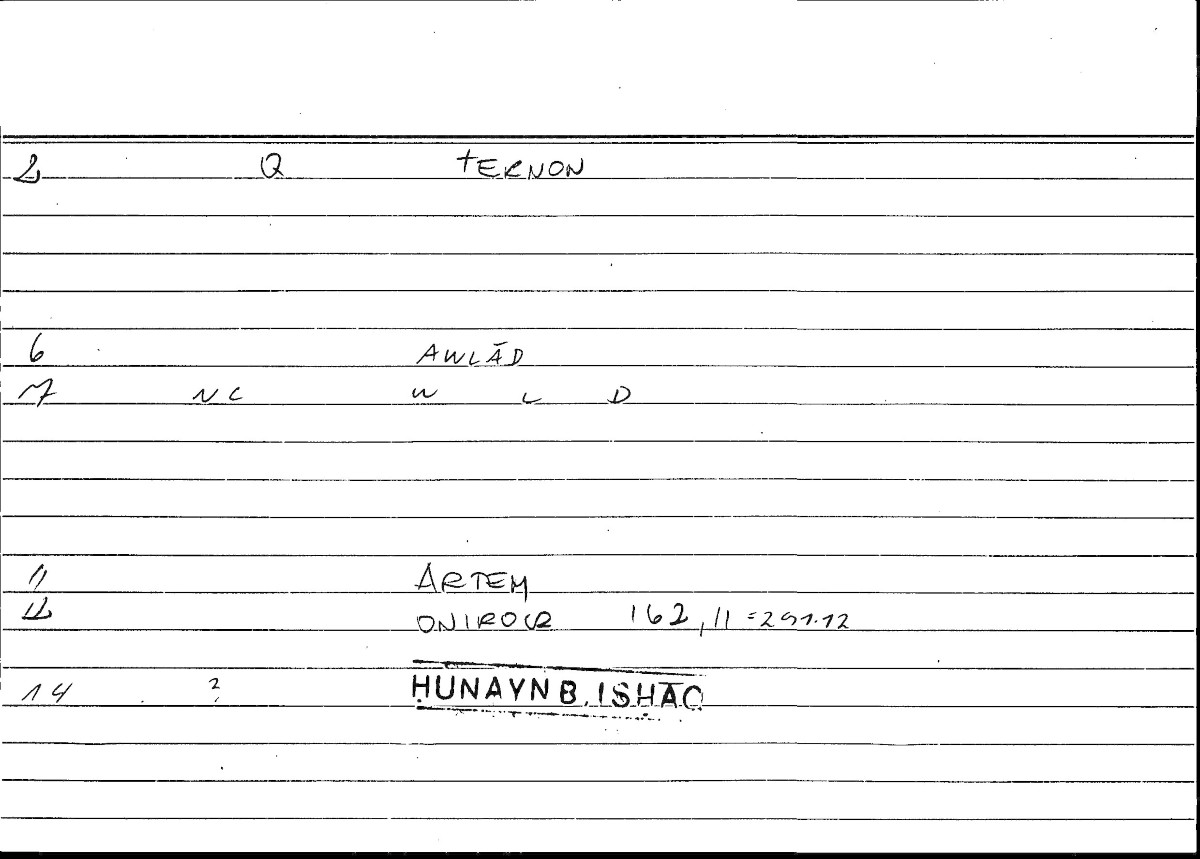 2 Q TERNON
6 AWLĀD
7 NC W L D
11 ARTEM
12 ONIROCR 162,11 = 291.12
14 ? ḤUNAYN B. ISḤĀQ